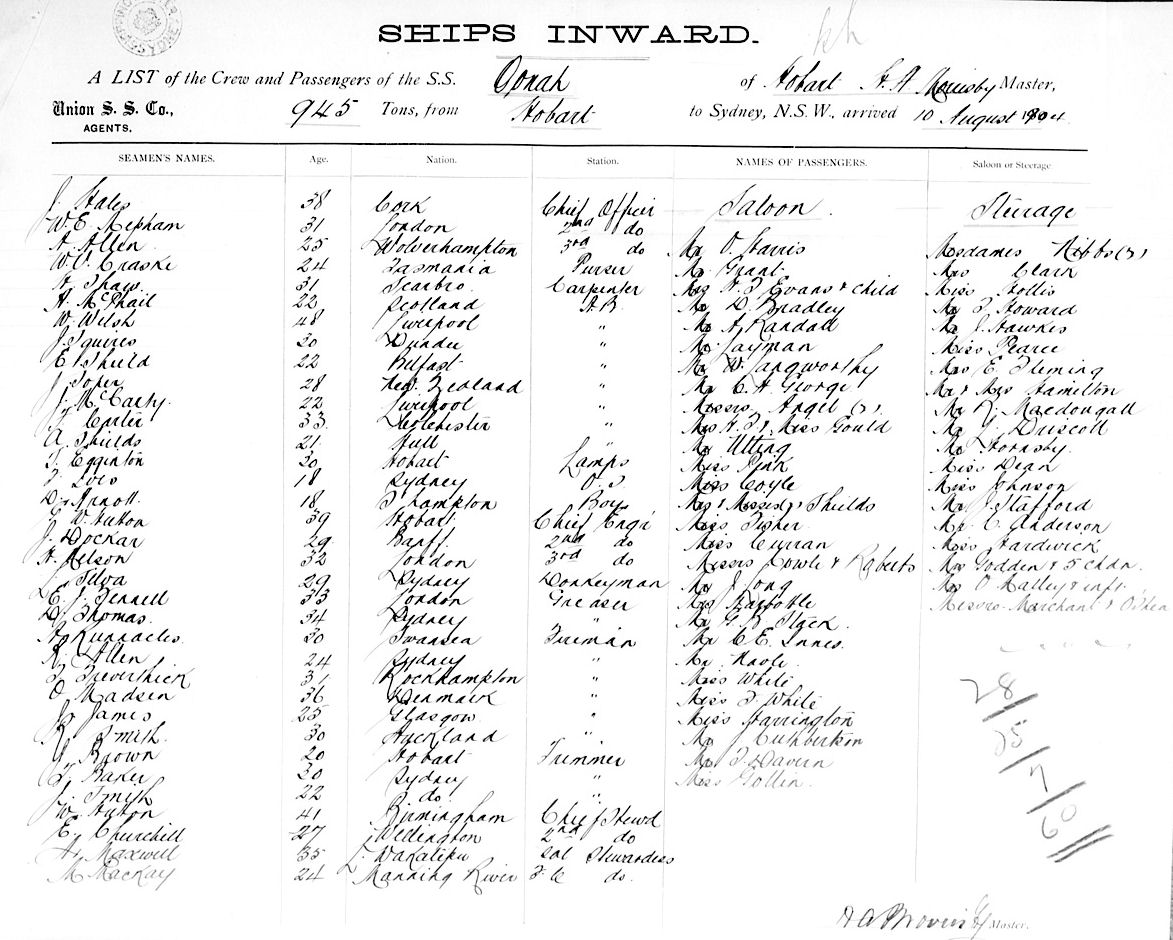 SHIPS INWARD.
A LIST of the Crew and Passengers of the S.S. Oonah of Hobart H A Morrisby Master,
Union S. S. Co., 945 Tons, from Hobart to Sydney, N.S.W., arrived 10 August 1904
AGENTS.
SEAMEN'S NAMES. Age. Nation. Station. NAMES OF PASSENGERS. Saloon or Steerage
J. Hales 38 Cork Chief Officer Saloon. Steerage
W. E. Mepham 31 London 2nd do
A. Allen 25 Wolverhampton 3rd do Mr O Harris Mesdames Hibbs (2)
24 Tasmania Purser Mr Grant Mrs Clark
A. Shaw 31 Scarbro. Carpenter Mrs Evans & Child Miss Hollis
A. McPhail 22 Scotland A.B. Mr D. Bradley Mr Howard
W. Welsh 48 Liverpool " Mr A. Randall Mr J. Hawkes
J. Squires 30 Dundee " Mr Layman Miss Pearce
E. Sheild 22 Belfast " Mr W. Langworthy Mrs E. Fleming
J. Soper 28 New Zealand " Mr C. H. George Mr & Mrs Hamilton
J. McCarty. 22 Liverpool " Messrs Angel (2). Mr R. Macdougall
J. Carter 33 " Mrs & Miss Gould Mr J. Driscoll
A. Shields 21 Hull " Mr Utting Mr Hornsby.
Egginton 30 Hobart Lamps Miss Pink Miss Dean
18 Sydney O.S Miss Coyle Miss Johnson
D. Arnott. 18 S'hampton Boy Mrs & Misses Shields Mr J. Stafford
W. Hutton 39 Hobart Chief Engr Miss Fisher Mr C. Anderson
J. Dockar 29 Banff 2nd do Miss Curran Miss Hardwick
A. Nelson 32 London 3rd do Messrs & Roberts Mrs Godden & 5 chdn.
J. Silva 29 Sydney Donkeyman Mr J. Long Mrs O Malley & inft.
E. J. Fennell 33 London Greaser Mrs Messrs Marchant & O'Shea
D. Thomas. 34 Sydney " Mr Slack.
30 Swansea Fireman Mr C. E. Innes.
R. Allen 24 Sydney " Mr
Treverthick 31 Rockhampton " Miss White
O. Madsen 36 Denmark " Miss White
J. James 25 Glasgow. " Miss Harrington
R. Smith. 30 Auckland " Mr J. Cuthbertson
G. Brown 20 Hobart Trimmer Mr Davern
Baker 30 Sydney " Miss Gollin.
J. Smith 22 do. "
W. Huton 41 Birmingham Chief Stewd
E. Churchill 27 Wellington 2nd do
Maxwell 35 L. Wakatipu Sal Stewardess
M Mackay 24 Manning River do.
28/
25/
7/
60//
H A Morrisby Master.